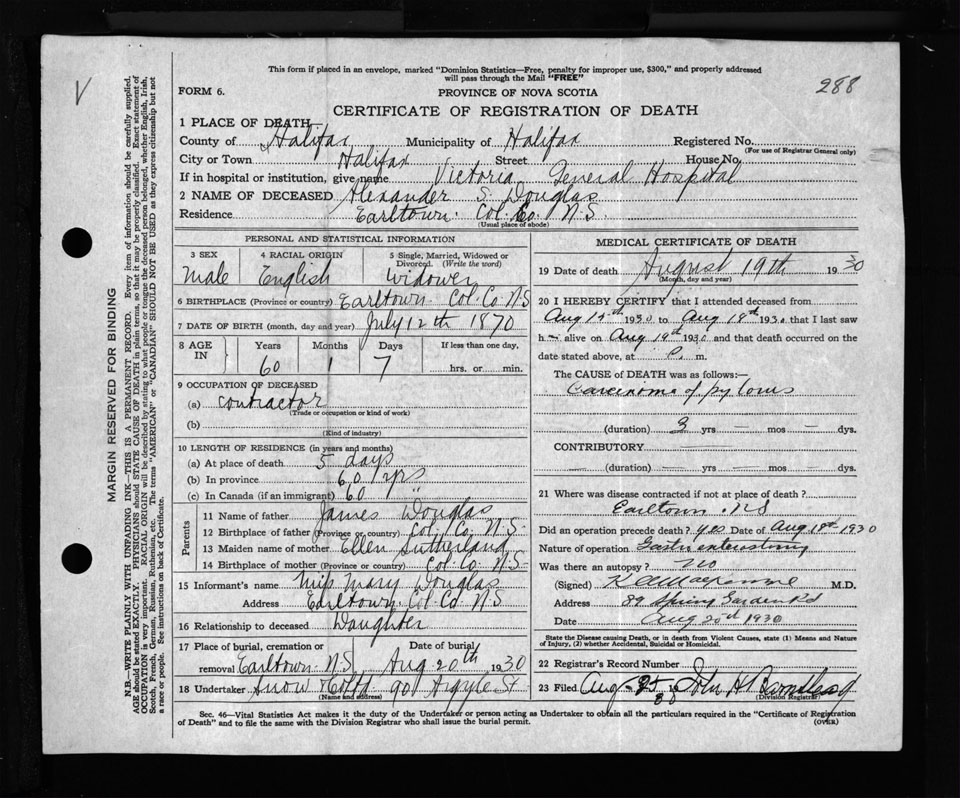 This form if placed in an envelope, marked "Dominion Statistics—Free, penalty for improper use, $300," and properly addressed
will pass through the Mail "FREE"
V
288
FORM 6.
PROVINCE OF NOVA SCOTIA
CERTIFICATE OF REGISTRATION OF DEATH
1 PLACE OF DEATH
County of Halifax Municipality of Halifax Registered No.
(For use of Registrar General only)
City or Town Halifax Street House No.
If in hospital or institution, give name Victoria General Hospital
2 NAME OF DECEASED Alexander S. Douglas
Residence Earltown. Col. Co. N.S.
(Usual place of abode)
PERSONAL AND STATISTICAL INFORMATION
3 SEX 4 RACIAL ORIGIN 5 Single, Married, Widowed or
Divorced. (Write the word)
Male English Widower
6 BIRTHPLACE (Province or country) Earltown Col. Co N.S
7 DATE OF BIRTH (month, day and year) July 12th 1870
8 AGE IN Years Months Days If less than one day,
60 1 7 hrs. or min.
9 OCCUPATION OF DECEASED
(a) Contractor
(Trade or occupation or kind of work)
(b)
(Kind of industry)
10 LENGTH OF RESIDENCE (in years and months)
(a) At place of death 5 days
(b) In province 60 yrs
(c) In Canada (if an immigrant) 60 "
Parents
11 Name of father James Douglas
12 Birthplace of father (Province or country) Col. Co. N.S.
13 Maiden name of mother Ellen Sutherland
14 Birthplace of mother (Province or country) Col. Co. N.S.
15 Informant's name Miss Mary Douglas
Address Earltown. Col. Co. N.S
16 Relationship to deceased Daughter
17 Place of burial, cremation or Date of burial
removal Earltown N.S. Aug 20th 1930
18 Undertaker Snow 90 Argyle St
(Name and address)
MEDICAL CERTIFICATE OF DEATH
19 Date of death August 19th 1930
(Month, day and year)
20 I HEREBY CERTIFY that I attended deceased from
Aug 1930 to Aug 18th 1930 that I last saw
h alive on Aug 19th 1930 and that death occurred on the
date stated above, at P. m.
The CAUSE OF DEATH was as follows:
Carcinoma of pylorus
(duration) 3 yrs — mos — dys.
CONTRIBUTORY
(duration) — yrs — mos — dys.
21 Where was disease contracted if not at place of death?
Earltown. N.S
Did an operation precede death? yes Date of Aug 18th 1930
Nature of operation Gastro enterostomy
Was there an autopsy? No
(Signed) M.D.
Address 89 Spring Garden Rd
Date Aug 25th 1930
State the Disease causing Death, or in death from Violent Causes, state (1) Means and Nature
of Injury, (2) whether Accidental, Suicidal or Homicidal.
22 Registrar's Record Number
23 Filed Aug 25 John H Barnstead
(Division Registrar)
Sec. 46—Vital Statistics Act makes it the duty of the Undertaker or person acting as Undertaker to obtain all the particulars required in the "Certificate of Registration
of Death" and to file the same with the Division Registrar who shall issue the burial permit.
(OVER)
MARGIN RESERVED FOR BINDING
N.B.—WRITE PLAINLY WITH UNFADING INK—THIS IS A PERMANENT RECORD. Every item of information should be carefully supplied.
AGE should be stated EXACTLY. PHYSICIANS should STATE CAUSE OF DEATH in plain terms, so that it may be properly classified. Exact statement of
OCCUPATION is very important. RACIAL ORIGIN will be described by stating to what people or tongue the deceased person belonged, whether English, Irish,
Scotch, French, German, Russian, Ruthenian, etc. The terms "AMERICAN" or "CANADIAN" SHOULD NOT BE USED as they express citizenship but not
a race or people. See instructions on back of Certificate.